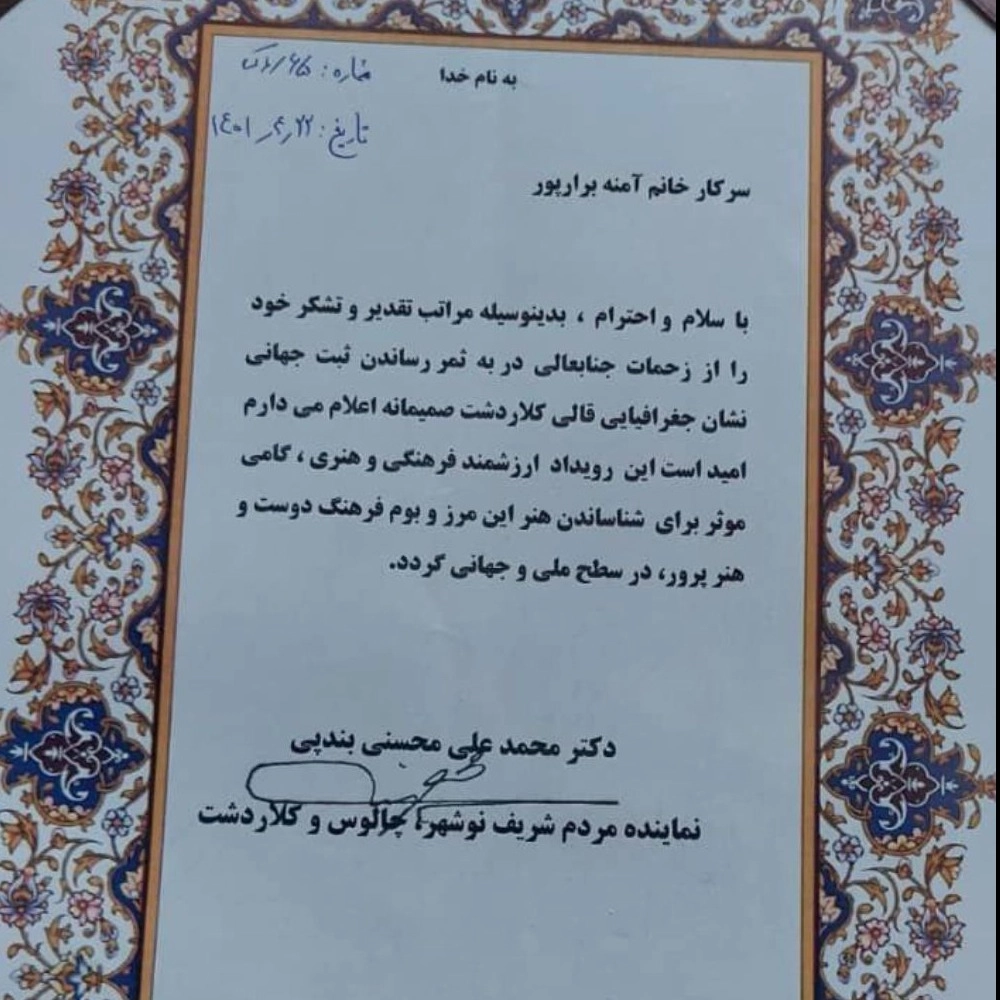 به نام خدا
شماره: ۶۸۵/
تاریخ: ۱۴۰۱
سرکار خانم آمنه برارپور
با سلام و احترام ، بدینوسیله مراتب تقدیر و تشکر خود
را از زحمات جنابعالی در به ثمر رساندن ثبت جهانی
نشان جغرافیایی قالی کلاردشت صمیمانه اعلام می دارم
امید است این رویداد ارزشمند فرهنگی و هنری ، گامی
موثر برای شناساندن هنر این مرز و بوم فرهنگ دوست و
هنر پرور، در سطح ملی و جهانی گردد.
دکتر محمد علی محسنی بندپی
نماینده مردم شریف نوشهر، چالوس و کلاردشت